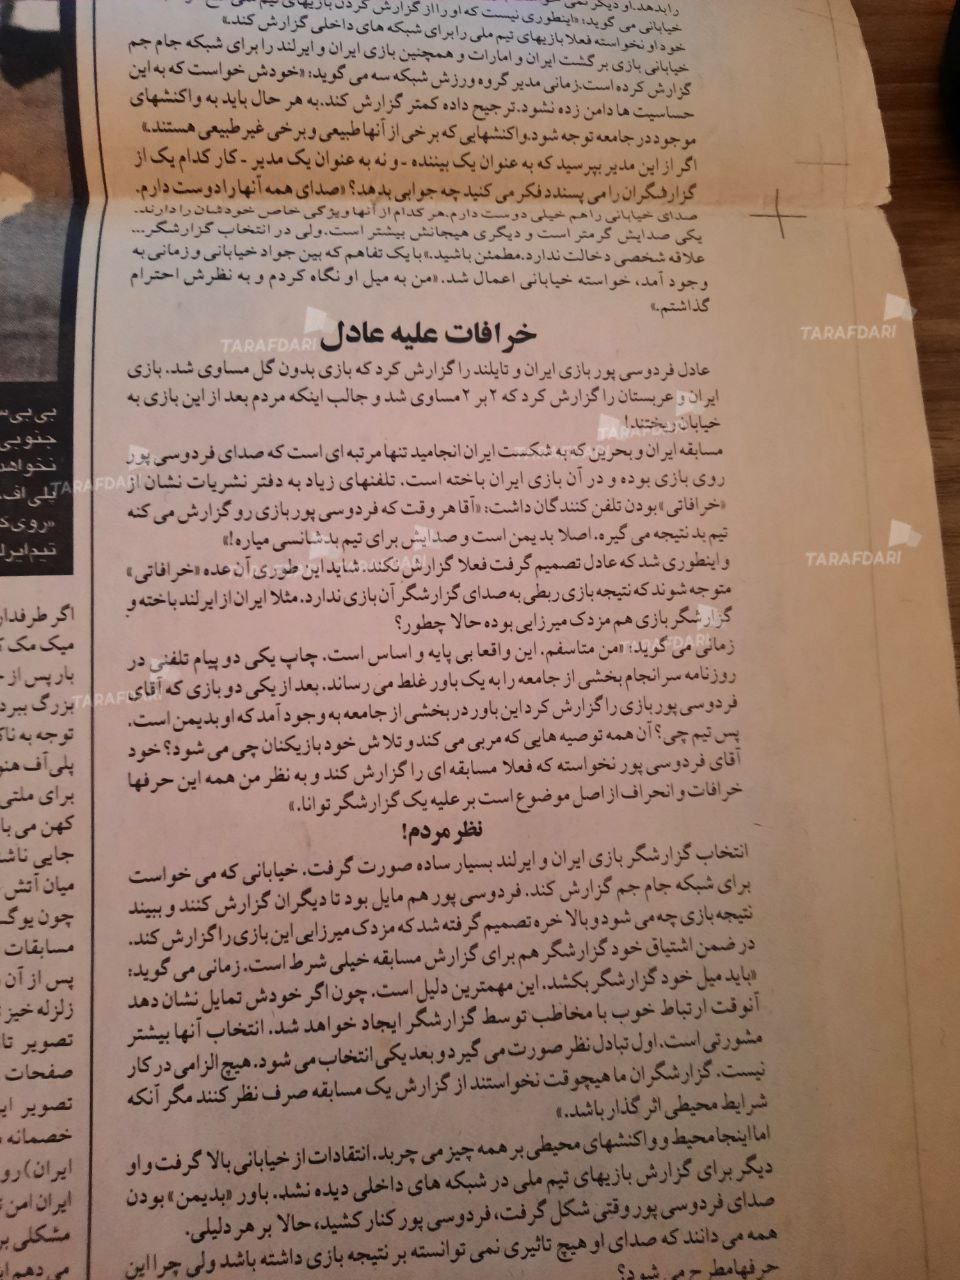 را بدهد. او دیگر نمی
خیابانی می گوید: «اینطوری نیست که او را از گزارش کردن بازیهای تیم ملی
خود او نخواسته فعلا بازیهای تیم ملی را برای شبکه های داخلی گزارش کند.»
خیابانی بازی برگشت ایران و امارات و همچنین بازی ایران و ایرلند را برای شبکه جام جم
گزارش کرده است. زمانی مدیر گروه ورزش شبکه سه می گوید: «خودش خواست که به این
حساسیت ها دامن زده نشود. ترجیح داده کمتر گزارش کند. به هر حال باید به واکنشهای
موجود در جامعه توجه شود. واکنشهایی که برخی از آنها طبیعی و برخی غیر طبیعی هستند.»
اگر از این مدیر بپرسید که به عنوان یک بیننده - و نه به عنوان یک مدیر - کار کدام یک از
گزارشگران را می پسندد فکر می کنید چه جوابی بدهد؟ «صدای همه آنها را دوست دارم.
صدای خیابانی را هم خیلی دوست دارم. هر کدام از آنها ویژگی خاص خودشان را دارند.
یکی صدایش گرمتر است و دیگری هیجانش بیشتر است. ولی در انتخاب گزارشگر...
علاقه شخصی دخالت ندارد. مطمئن باشید.» با یک تفاهم که بین جواد خیابانی و زمانی به
وجود آمد، خواسته خیابانی اعمال شد. «من به میل او نگاه کردم و به نظرش احترام
گذاشتم.»
خرافات علیه عادل
عادل فردوسی پور بازی ایران و تایلند را گزارش کرد که بازی بدون گل مساوی شد. بازی
ایران و عربستان را گزارش کرد که ۲ بر ۲ مساوی شد و جالب اینکه مردم بعد از این بازی به
خیابان ریختند!
مسابقه ایران و بحرین که به شکست ایران انجامید تنها مرتبه ای است که صدای فردوسی پور
روی بازی بوده و در آن بازی ایران باخته است. تلفنهای زیاد به دفتر نشریات نشان از
«خرافاتی» بودن تلفن کنندگان داشت: «آقا هر وقت که فردوسی پور بازی رو گزارش می کنه
تیم بد نتیجه می گیره. اصلا بدیمن است و صدایش برای تیم بدشانسی میاره!»
و اینطوری شد که عادل تصمیم گرفت فعلا گزارش نکند. شاید این طوری آن عده «خرافاتی»
متوجه شوند که نتیجه بازی ربطی به صدای گزارشگر آن بازی ندارد. مثلا ایران از ایرلند باخته و
گزارشگر بازی هم مزدک میرزایی بوده حالا چطور؟
زمانی می گوید: «من متاسفم. این واقعا بی پایه و اساس است. چاپ یکی دو پیام تلفنی در
روزنامه سرانجام بخشی از جامعه را به یک باور غلط می رساند. بعد از یکی دو بازی که آقای
فردوسی پور بازی را گزارش کرد این باور در بخشی از جامعه به وجود آمد که او بدیمن است.
پس تیم چی؟ آن همه توصیه هایی که مربی می کند و تلاش خود بازیکنان چی می شود؟ خود
آقای فردوسی پور نخواسته که فعلا مسابقه ای را گزارش کند و به نظر من همه این حرفها
خرافات و انحراف از اصل موضوع است بر علیه یک گزارشگر توانا.»
نظر مردم!
انتخاب گزارشگر بازی ایران و ایرلند بسیار ساده صورت گرفت. خیابانی که می خواست
برای شبکه جام جم گزارش کند. فردوسی پور هم مایل بود تا دیگران گزارش کنند و ببیند
نتیجه بازی چه می شود و بالاخره تصمیم گرفته شد که مزدک میرزایی این بازی را گزارش کند.
در ضمن اشتیاق خود گزارشگر هم برای گزارش مسابقه خیلی شرط است. زمانی می گوید:
«باید میل خود گزارشگر بکشد. این مهمترین دلیل است. چون اگر خودش تمایل نشان دهد
آنوقت ارتباط خوب با مخاطب توسط گزارشگر ایجاد خواهد شد. انتخاب آنها بیشتر
مشورتی است. اول تبادل نظر صورت می گیرد و بعد یکی انتخاب می شود. هیچ الزامی در کار
نیست. گزارشگران ما هیچوقت نخواستند از گزارش یک مسابقه صرف نظر کنند مگر آنکه
شرایط محیطی اثر گذار باشد.»
اما اینجا محیط و واکنشهای محیطی بر همه چیز می چربد. انتقادات از خیابانی بالا گرفت و او
دیگر برای گزارش بازیهای تیم ملی در شبکه های داخلی دیده نشد. باور «بدیمن» بودن
صدای فردوسی پور وقتی شکل گرفت، فردوسی پور کنار کشید، حالا بر هر دلیلی.
همه می دانند که صدای او هیچ تاثیری نمی توانسته بر نتیجه بازی داشته باشد ولی چرا این
حرفها مطرح می شود؟
بی بی س
جنوبی
نخواهد
پلی اف
«روی ک
تیم ایرل
اگر طرفدار
میک مک ک
بار پس از
بزرگ ببرد
توجه به ناک
پلی آف هنو
برای ملتی
کهن می با
جایی ناشن
میان آتش
چون یوگ
مسابقات
پس از آن
زلزله خیز
تصویر تا
صفحات
تصویر ایر
خصمانه
ایران) رو
ایران امن
مشکلی بر
می دهم ای
TARAFDARI
TARAFDARI
TARAFDARI
TARAFDARI
TARAFDARI
TARAFDARI
TARAFDARI